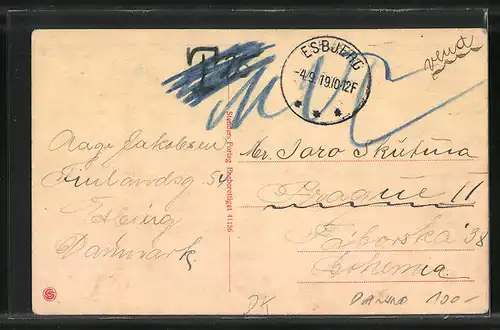 T
ESBJERG
-4.9.19.10-12F
vend
Aage Jakobsen
Finlandsg 54
Esbjerg
Danmark
Stenders Forlag Eneberettiget 41156
Mr. Jaro Skutina
Prague II
Táborská 38
Bohemia
DK
100-